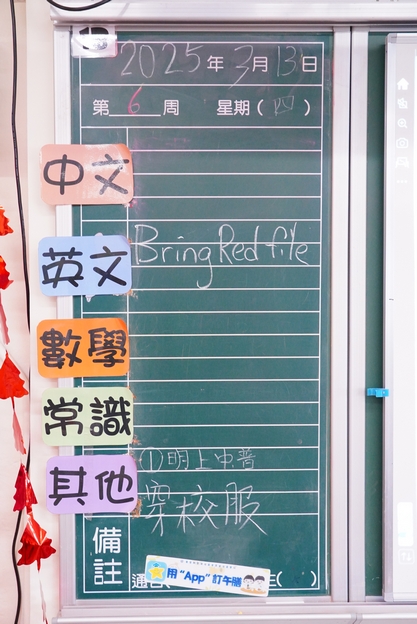 2025年3月13日
第6周 星期(四)
中文
英文 Bring Red file
數學
常識
(1)明上中普
其他
穿校服
備註
用"App"訂午膳